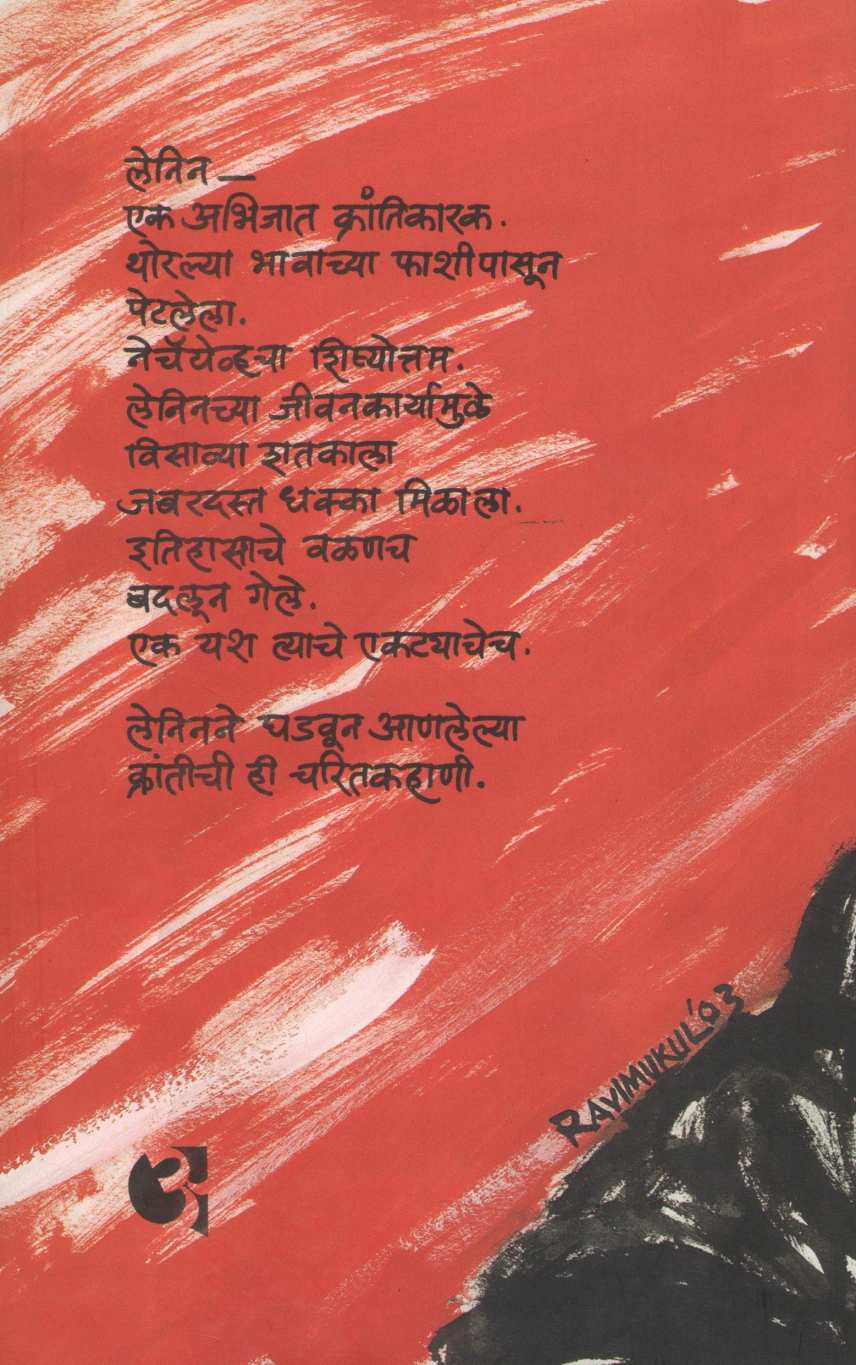 लेनिन —
एक अभिजात क्रांतिकारक.
थोरल्या भावाच्या फाशीपासून
पेटलेला.
नेचॅयेव्हचा शिष्योत्तम.
लेनिनच्या जीवनकार्यामुळे
विसाव्या शतकाला
जबरदस्त धक्का मिळाला.
इतिहासाचे वळणच
बदलून गेले.
एक यश त्याचे एकट्याचेच.
लेनिनने घडवून आणलेल्या
क्रांतीची ही चरितकहाणी.
RAVIMUKUL'03